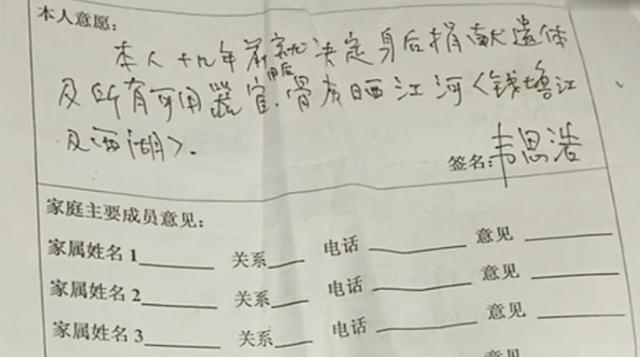 本人意愿：
本人十九年前就决定身后捐献遗体
及所有可用器官.用后骨灰晒江河<钱塘江
及西湖>.
签名:韦思浩
家庭主要成员意见：
家属姓名1 关系 电话 意见
家属姓名2 关系 电话 意见
家属姓名3 关系 电话 意见
意见